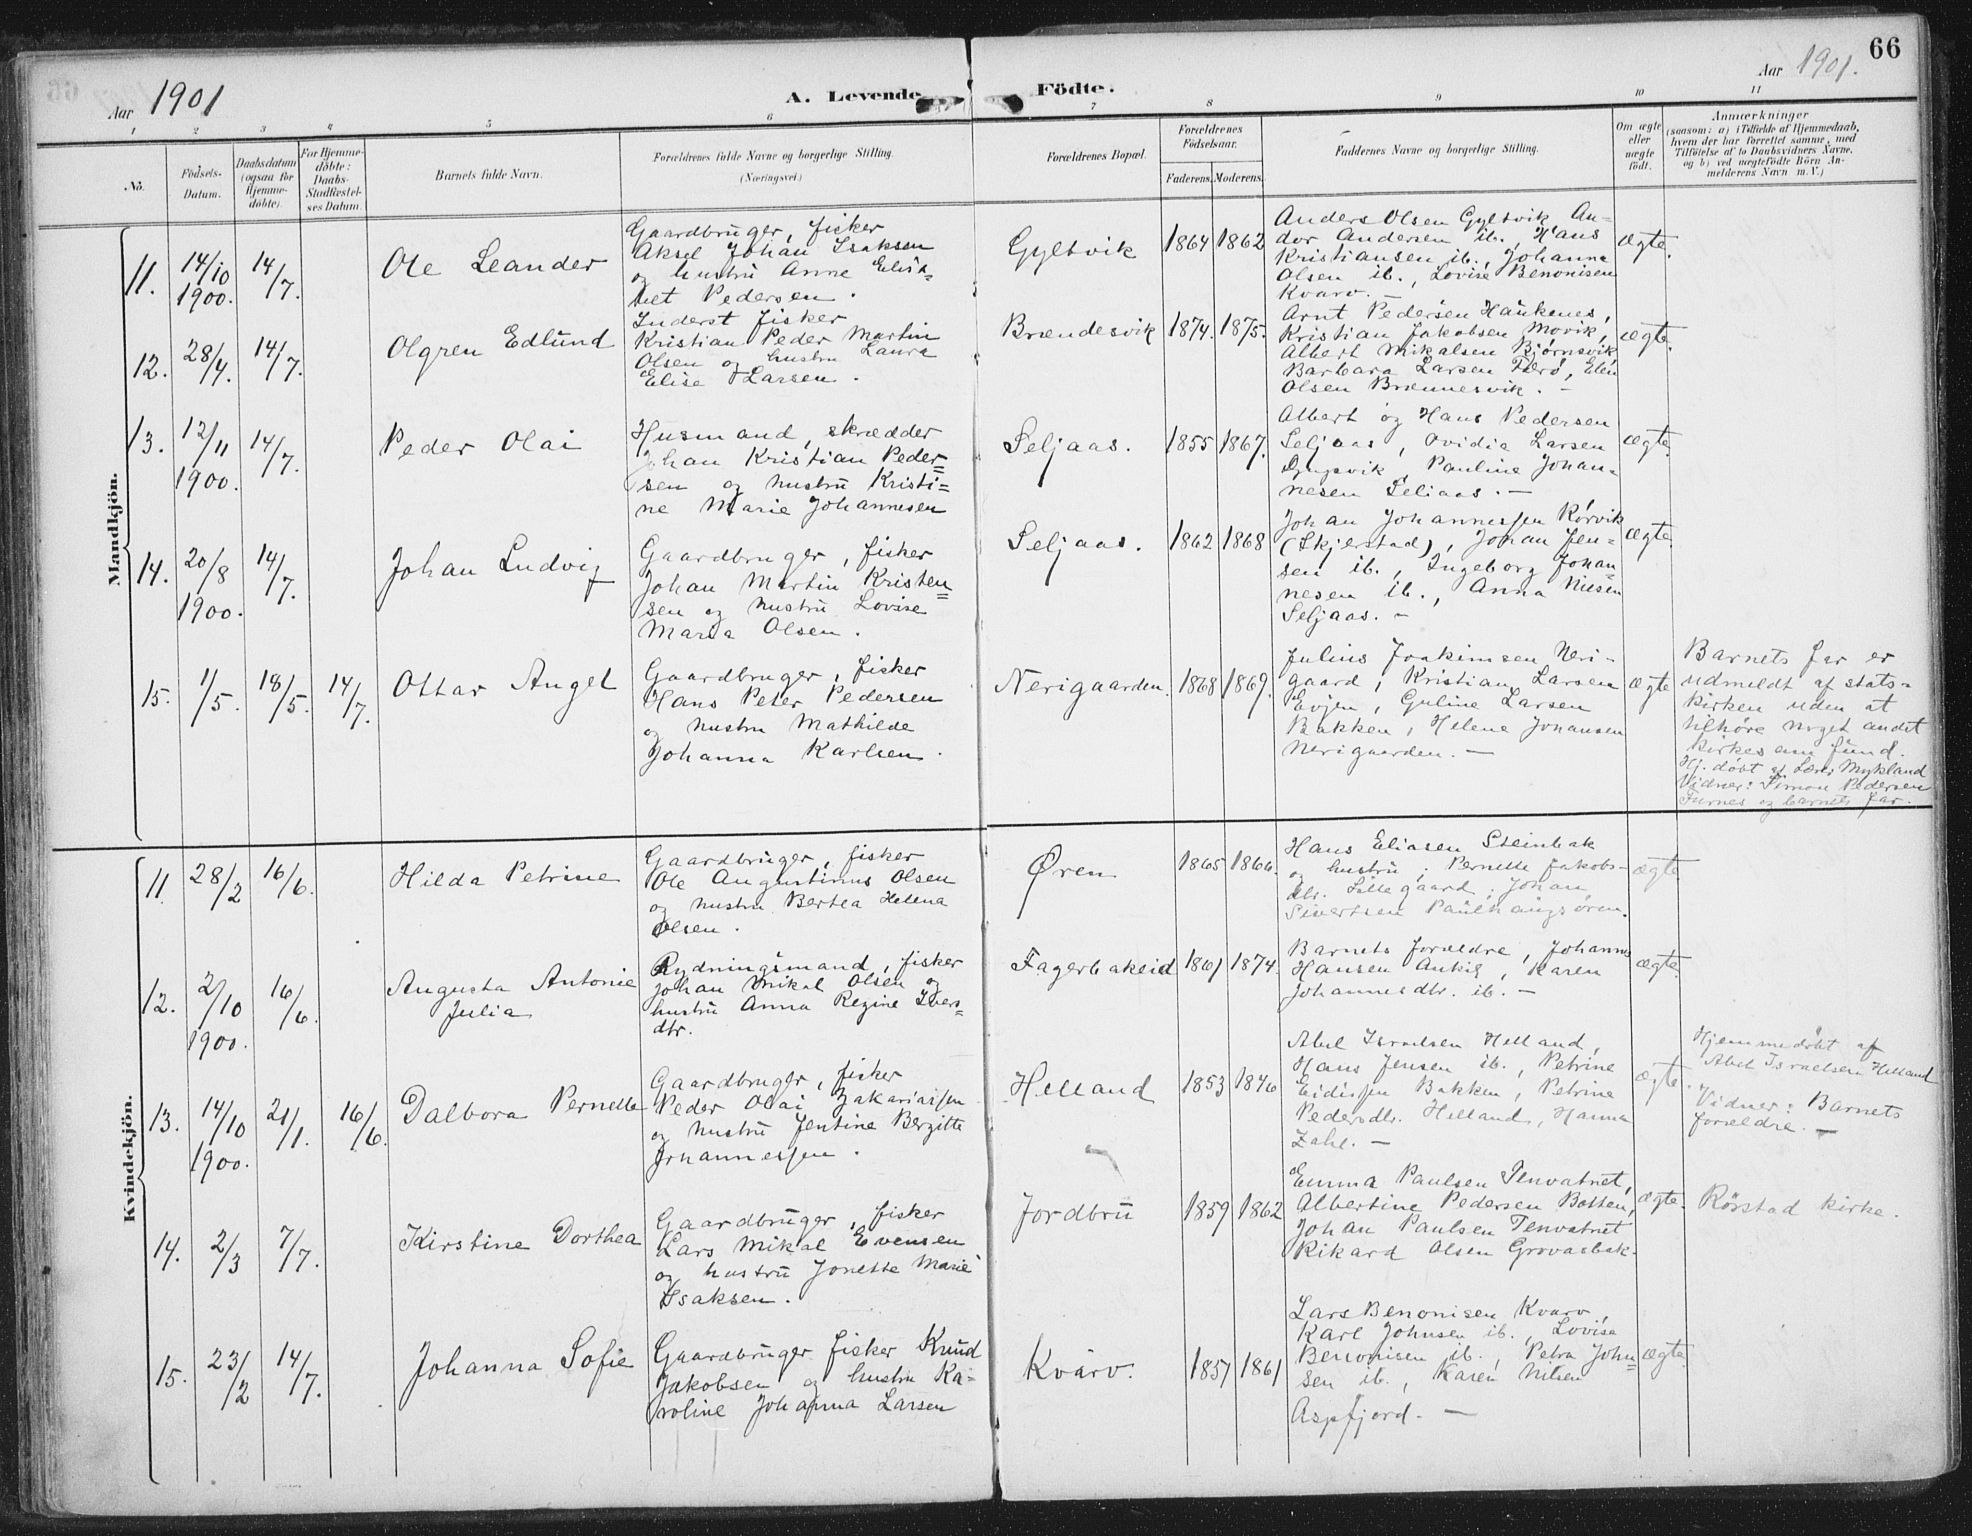 Aar 1901
A. Levende Födte.
Aar 1901.
66
1 2 3 4 5 6 7 8 9 10 11
No.
Födsels-Datum.
Daabsdatum (ogsaa for Hjemmedöbte).
For Hjemmedöbte: Daabs-Stadfæstelses Datum.
Barnets fulde Navn.
Forældrenes fulde Navne og borgerlige Stilling.
(Næringsvei.)
Forældrenes Bopæl.
Forældrenes Födselsaar.
Faderens. Moderens.
Faddernes Navne og borgerlige Stilling.
Om ægte eller uægte födt.
Anmærkninger
(saasom: a) i Tilfælde af Hjemmedaab,
hvem der har forrettet samme, med
Tilföielse af to Daabsvidners Navne,
og b) ved uægtefödte Börn An-
melderens Navn m. V.)
Mandkjön.
11.
14/10
1900.
14/7.
Ole Leander
Gaardbruger, fisker
Aksel Johan Isaksen
og hustru Anne Elisa-
bet Pedersen.
Gyltvik
1864 1862
Anders Olsen Gyltvik, An-
dor Andersen ib., Hans
Kristiansen ib., Johanna
Olsen ib., Lovise Benonisen
Kvarv. –
ægte.
12.
28/4.
14/7.
Olgren Edlund
Inderst fisker
Kristian Peder Martin
Olsen og hustru Laura
Elise Larsen.
Brændesvik
1874. 1875.
Arnt Pedersen Haukenes,
Kristian Jakobsen Movik,
Albert Mikalsen Bjørnsvik,
Barbara Larsen Færø, Elen
Olsen Brænnesvik. –
ægte.
13.
12/11
1900.
14/7.
Peder Olai
Husmand, skrædder
Johan Kristian Peder=
sen og hustru Kristi=
ne Marie Johannesen
Seljaas.
1855 1867.
Albert og Hans Pedersen
Seljaas, Ovidia Larsen
Pauline Johan=
nesen Seljaas. –
ægte.
14.
20/8
1900.
14/7.
Johan Ludvig
Gaardbruger, fisker
Johan Martin Kristen=
sen og hustru Lovise
Maria Olsen.
Seljaas.
1862 1868
Johan Johannessen Rörvik
(Skjerstad), Johan Jen=
sen ib., Ingeborg Johan=
nesen ib., Anna Nilsen
Seljaas. –
ægte.
15.
1/5.
18/5.
14/7.
Ottar Angel
Gaardbruger, fisker
Hans Peter Pedersen
og hustru Mathilde
Johanna Karlsen.
Nerigaarden.
1868 1869.
Julius Joakimsen Neri-
gaard, Kristian Larsen
Evjen, Guline Larsen
Bakken, Helene Johansen
Nerigaarden. –
ægte
Barnets far er
udmeldt af stats-
kirken uden at
tilhöre noget andet
kirkesamfund.
Hj. döbt af Lærer Mykland
Vidner: Simon Pedersen
Furnes og barnets far.
Kvindekjön.
11.
28/2
16/6.
Hilda Petrine
Gaardbruger, fisker
Ole Augustinus Olsen
og hustru Bertea Helena
Olsen.
Øren
1865 1866.
Hans Eliasen Steinbak
og hustru, Pernette Jakobs-
dtr. Lillegaard, Johan
Sivertsen Paulhaugsören.
ægte
12.
2/10
1900.
16/6.
Augusta Antonie
Julia
Rydningsmand, fisker
Johan Mikal Olsen og
hustru Anna Regine Ivers=
dtr.
Fagerbakeid
1861 1874.
Barnets forældre, Johannes
Hansen Ankig, Karen
Johannesdtr. ib. –
ægte.
13.
14/10
1900.
21/1.
16/6.
Dalbora Pernette
Gaardbruger, fisker
Peder Olai Zakariassen
og hustru Jentine Bergitte
Johannessen.
Helland
1853 1876
Abel Israelsen Helland,
Hans Jensen ib., Petrine
Eidissen Bakken, Petrine
Pedersdtr. Helland, Hanna
Zahl. –
ægte.
Hjemmedöbt af
Abel Israelsen Helland
Vidner: Barnets
forældre. –
14.
2/3
7/7.
Kirstine Dorthea
Gaardbruger, fisker
Lars Mikal Evensen
og hustru Jonette Marie
Isaksen.
Jordbru
1859 1862
Emma Paulsen Tenvatnet,
Albertine Pedersen Botten,
Johan Paulsen Tenvatnet
Rikard Olsen Grovasbak.
ægte.
Rørstad kirke.
15.
23/2
14/7.
Johanna Sofie
Gaardbruger fisker Knud
Jakobsen og hustru Ka-
roline Johanna Larsen
Kvarv.
1857 1861
Lars Benonisen Kvarv,
Karl Johnsen ib., Lovise
Benonisen ib., Petra John=
sen ib., Karen Nilsen
Aspfjord. –
ægte